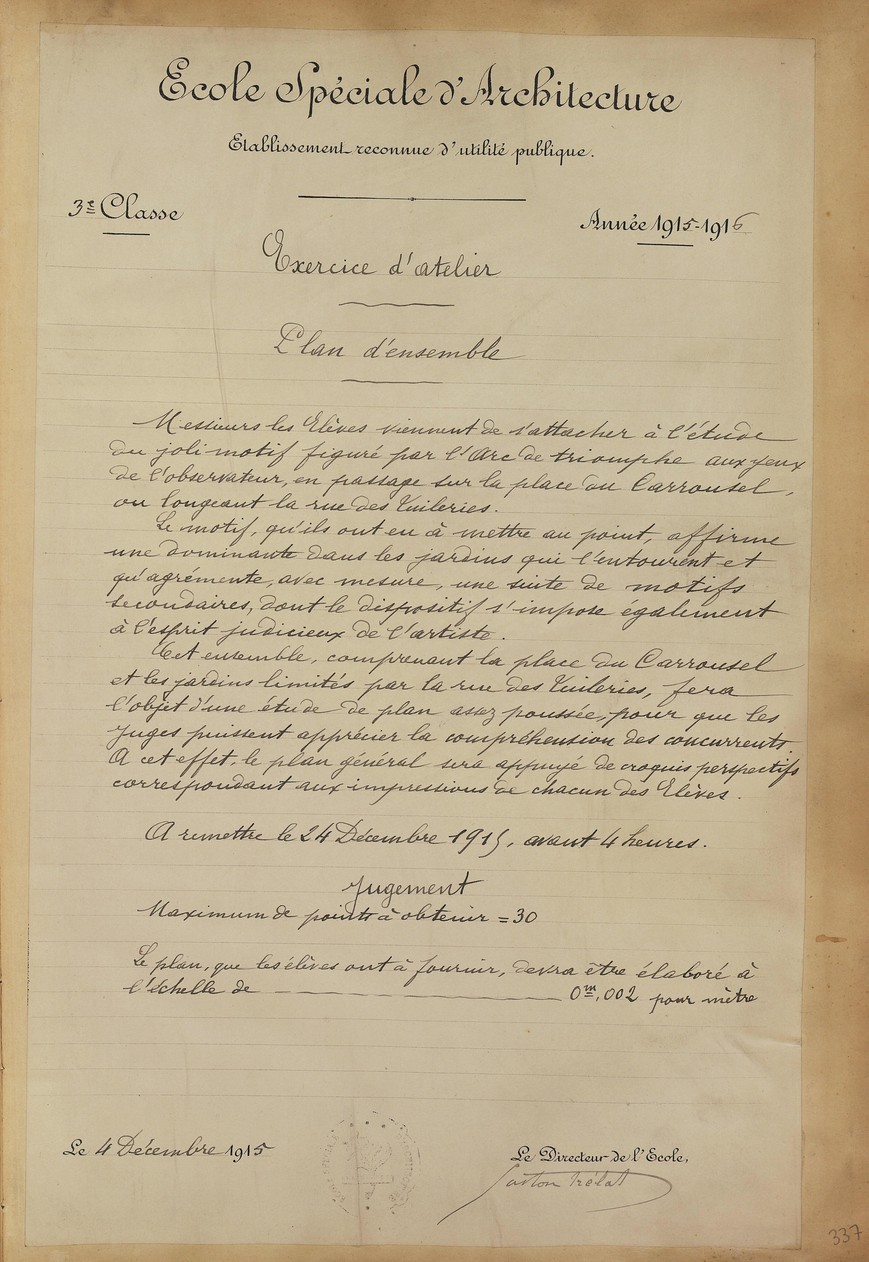 Ecole Spéciale d'Architecture
Etablissement reconnue d'utilité publique.
3e Classe
Année 1915-1916
Exercice d'atelier
Plan d'ensemble
Messieurs les Elèves viennent de s'attacher à l'étude
du joli motif figuré par l'Arc de triomphe aux yeux
de l'observateur, en passage sur la place du Carrousel,
ou longeant la rue des Tuileries.
Le motif, qu'ils ont eu à mettre au point, affirme
une dominante dans les jardins qui l'entourent et
qu'agrémente, avec mesure, une suite de motifs
secondaires, dont le dispositif s'impose également
à l'esprit judicieux de l'artiste.
Cet ensemble, comprenant la place du Carrousel
et les jardins limités par la rue des Tuileries, fera
l'objet d'une étude de plan assez poussée, pour que les
Juges puissent apprécier la compréhension des concurrents.
A cet effet, le plan général sera appuyé de croquis perspectifs
correspondant aux impressions de chacun des Elèves.
A remettre le 24 Décembre 1915, avant 4 heures.
Jugement
Maximum de points à obtenir = 30
Le plan, que les élèves ont à fournir, devra être élaboré à
l'échelle de 0m,002 pour mètre
Le 4 Décembre 1915
Le Directeur de l'Ecole,
Gaston Trélat
337